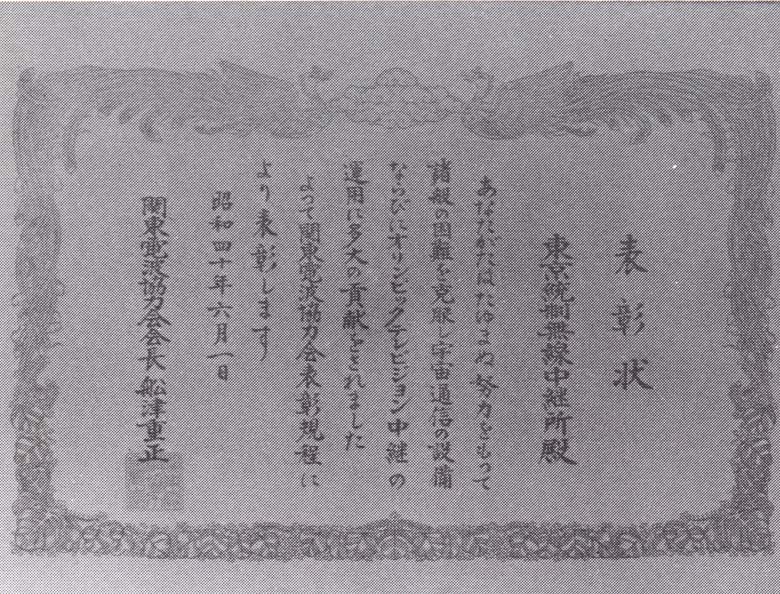 表彰状
東京統制無線中継所殿
あなたがたはたゆまぬ努力をもって
諸般の困難を克服し宇宙通信の設備
ならびにオリンピックテレビジョン中継の
運用に多大の貢献をされました
よって関東電波協力会表彰規程に
より表彰します
昭和四十年六月一日
関東電波協力会会長 舩津重正